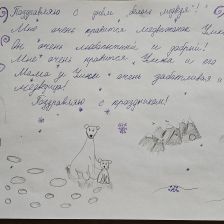 Поздравляю с днём белого медведя!
Мне очень нравится медвежонок Умка.
Он очень любопытный и добрый!
Мне очень нравится Умка и его
Мама у Умки очень заботливая
медведица!
Поздравляю с праздником!